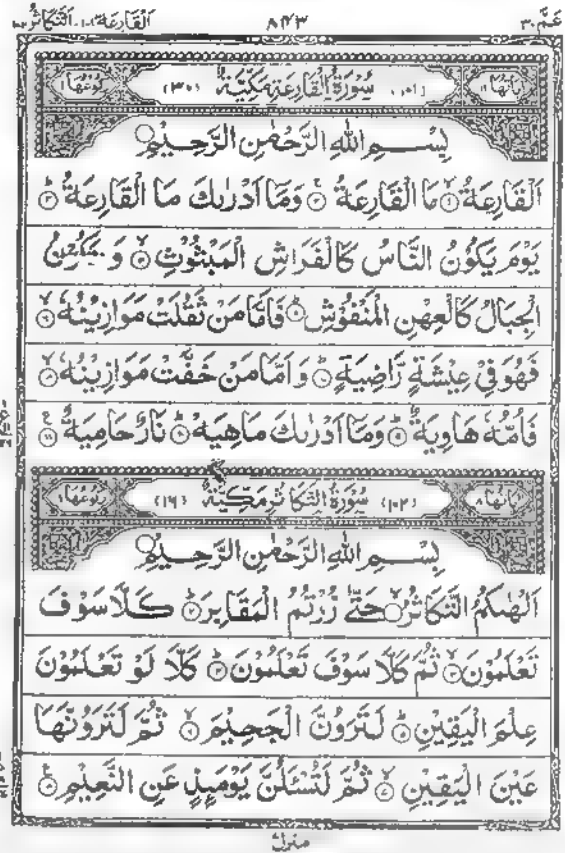 عَمَّ ۳۰ ۸۴۳ اَلْقَارِعَة ۱۰۱، اَلتَّكَاثُر ۱۰۲
اٰيَاتُهَا ۱۱ (۱۰۱) سُوْرَةُ الْقَارِعَةِ مَكِّيَّةٌ (۳۰) رُكُوْعُهَا ۱
بِسْمِ اللّٰهِ الرَّحْمٰنِ الرَّحِيْمِ
اَلْقَارِعَةُ ۱ مَا الْقَارِعَةُ ۲ وَمَاۤ اَدْرٰىكَ مَا الْقَارِعَةُ ۳
يَوْمَ يَكُوْنُ النَّاسُ كَالْفَرَاشِ الْمَبْثُوْثِ ۴ وَ تَكُوْنُ
الْجِبَالُ كَالْعِهْنِ الْمَنْفُوْشِ ۵ فَاَمَّا مَنْ ثَقُلَتْ مَوَازِيْنُهٗ ۶
فَهُوَ فِيْ عِيْشَةٍ رَّاضِيَةٍ ۷ وَ اَمَّا مَنْ خَفَّتْ مَوَازِيْنُهٗ ۸
فَاُمُّهٗ هَاوِيَةٌ ۹ وَمَاۤ اَدْرٰىكَ مَاهِيَهْ ۱۰ نَارٌ حَامِيَةٌ ۱۱
اٰيَاتُهَا ۸ (۱۰۲) سُوْرَةُ التَّكَاثُرِ مَكِّيَّةٌ (۱۶) رُكُوْعُهَا ۱
بِسْمِ اللّٰهِ الرَّحْمٰنِ الرَّحِيْمِ
اَلْهٰىكُمُ التَّكَاثُرُ ۱ حَتّٰى زُرْتُمُ الْمَقَابِرَ ۲ كَلَّا سَوْفَ
تَعْلَمُوْنَ ۳ ثُمَّ كَلَّا سَوْفَ تَعْلَمُوْنَ ۴ كَلَّا لَوْ تَعْلَمُوْنَ
عِلْمَ الْيَقِيْنِ ۵ لَتَرَوُنَّ الْجَحِيْمَ ۶ ثُمَّ لَتَرَوُنَّهَا
عَيْنَ الْيَقِيْنِ ۷ ثُمَّ لَتُسْـَٔلُنَّ يَوْمَىِٕذٍ عَنِ النَّعِيْمِ ۸
منزل